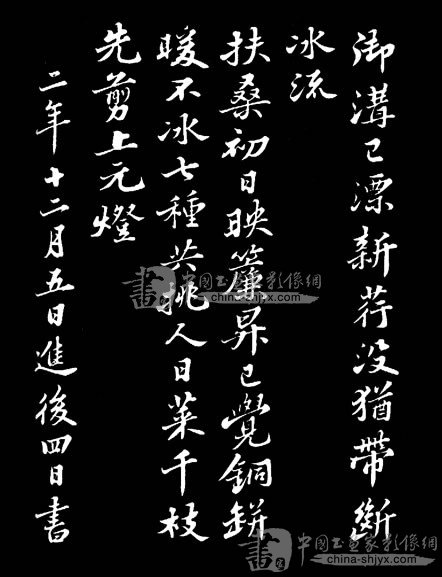 御溝已漂新荇没猶帶斷
冰流
扶桑初日映簾昇已覺銅缾
暖不冰七種共挑人日菜千枝
先剪上元燈
二年十二月五日進後四日書
書
中國书画家影像網
china-shjyx.com
書
中國书画家影像網
china-shjyx.com